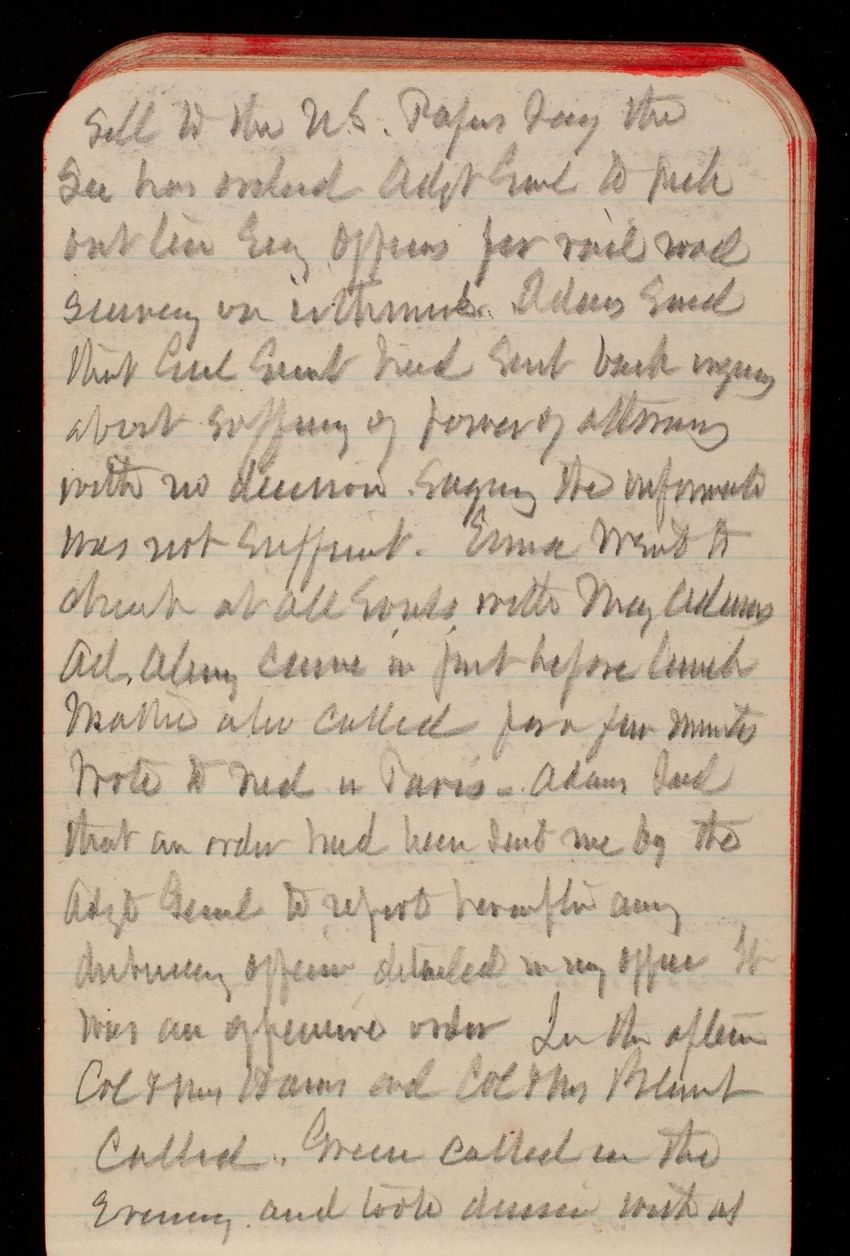 Sell to the U.S. Papers say the
Sec has ordered Adjt Genl to pick
out ten Eng officers for rail road
survey on isthmus. Adams said
that Genl Grant had sent back inquiry
about of power of attorney
with no decision. Saying the informati
was not sufficient. Emma went to
church at All Souls with May Adams
Ad. Almy came in just before lunch
Mattie also called for a few minutes
Wrote to Ned in Paris - Adams said
that an order had been sent me by the
Adjt Genl to report hereafter any
disbursing officer detailed in my office It
was an offensive order In the aftern
Col & Mrs and Col & Mrs Blunt
called. Green called in the
Evening and took dinner with us